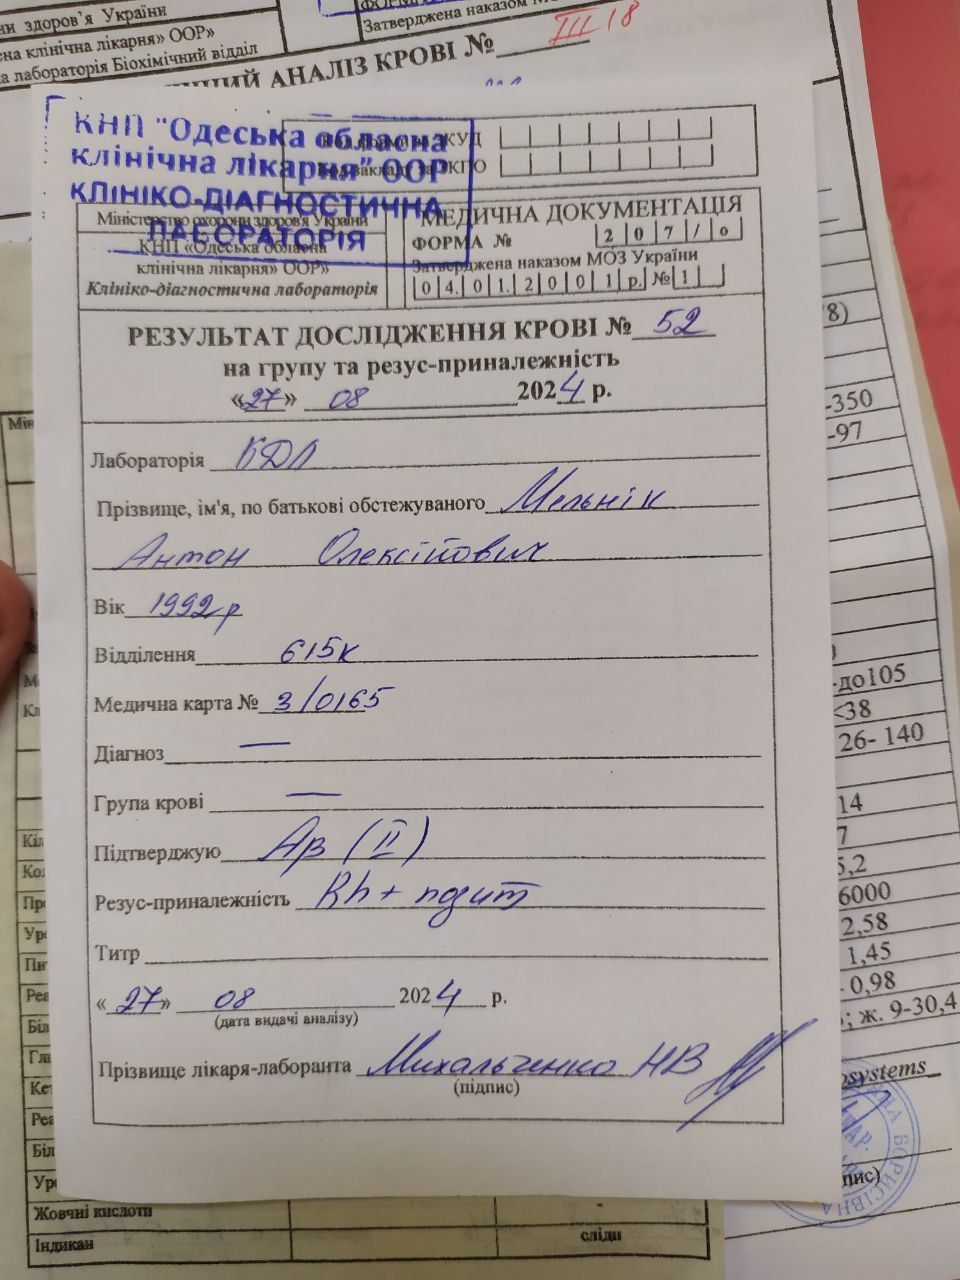 ни здоров’я України
ена клінічна лікарня» ООР»
а лабораторія Біохімічний відділ
Затверджена наказом МО
АНАЛІЗ КРОВІ №
III 18
КНП "Одеська обласна
клінічна лікарня" ООР
КЛІНІКО-ДІАГНОСТИЧНА
ЛАБОРАТОРІЯ
КУД
закладу за ЗКПО
Міністерство охорони здоров'я України
КНП «Одеська обласна
клінічна лікарня» ООР»
Клініко-діагностична лабораторія
МЕДИЧНА ДОКУМЕНТАЦІЯ
ФОРМА № 207/о
Затверджена наказом МОЗ України
04.01.2001р. №1
РЕЗУЛЬТАТ ДОСЛІДЖЕННЯ КРОВІ № 52
на групу та резус-приналежність
«27» 08 2024 р.
Лабораторія КДЛ
Прізвище, ім'я, по батькові обстежуваного Мельнік
Антон Олексійович
Вік 1992р
Відділення 615к
Медична карта № 3/0165
Діагноз —
Група крові —
Підтверджую Aβ (II)
Резус-приналежність Rh+ позит
Титр
«27» 08 2024 р.
(дата видачі аналізу)
Прізвище лікаря-лаборанта Михальченко НВ
(підпис)
8)
-350
-97
-до105
<38
26- 140
14
7
5,2
6000
2,58
1,45
0,98
; ж. 9-30,4
osystems
пис)
БОРИСІВНА
Мін
Кл
Кіл
Ко
Пр
Ур
Пи
Реа
Біл
Гл
Кет
Реа
Біл
Ур
Жовчні кислоти
Індикан
сліди